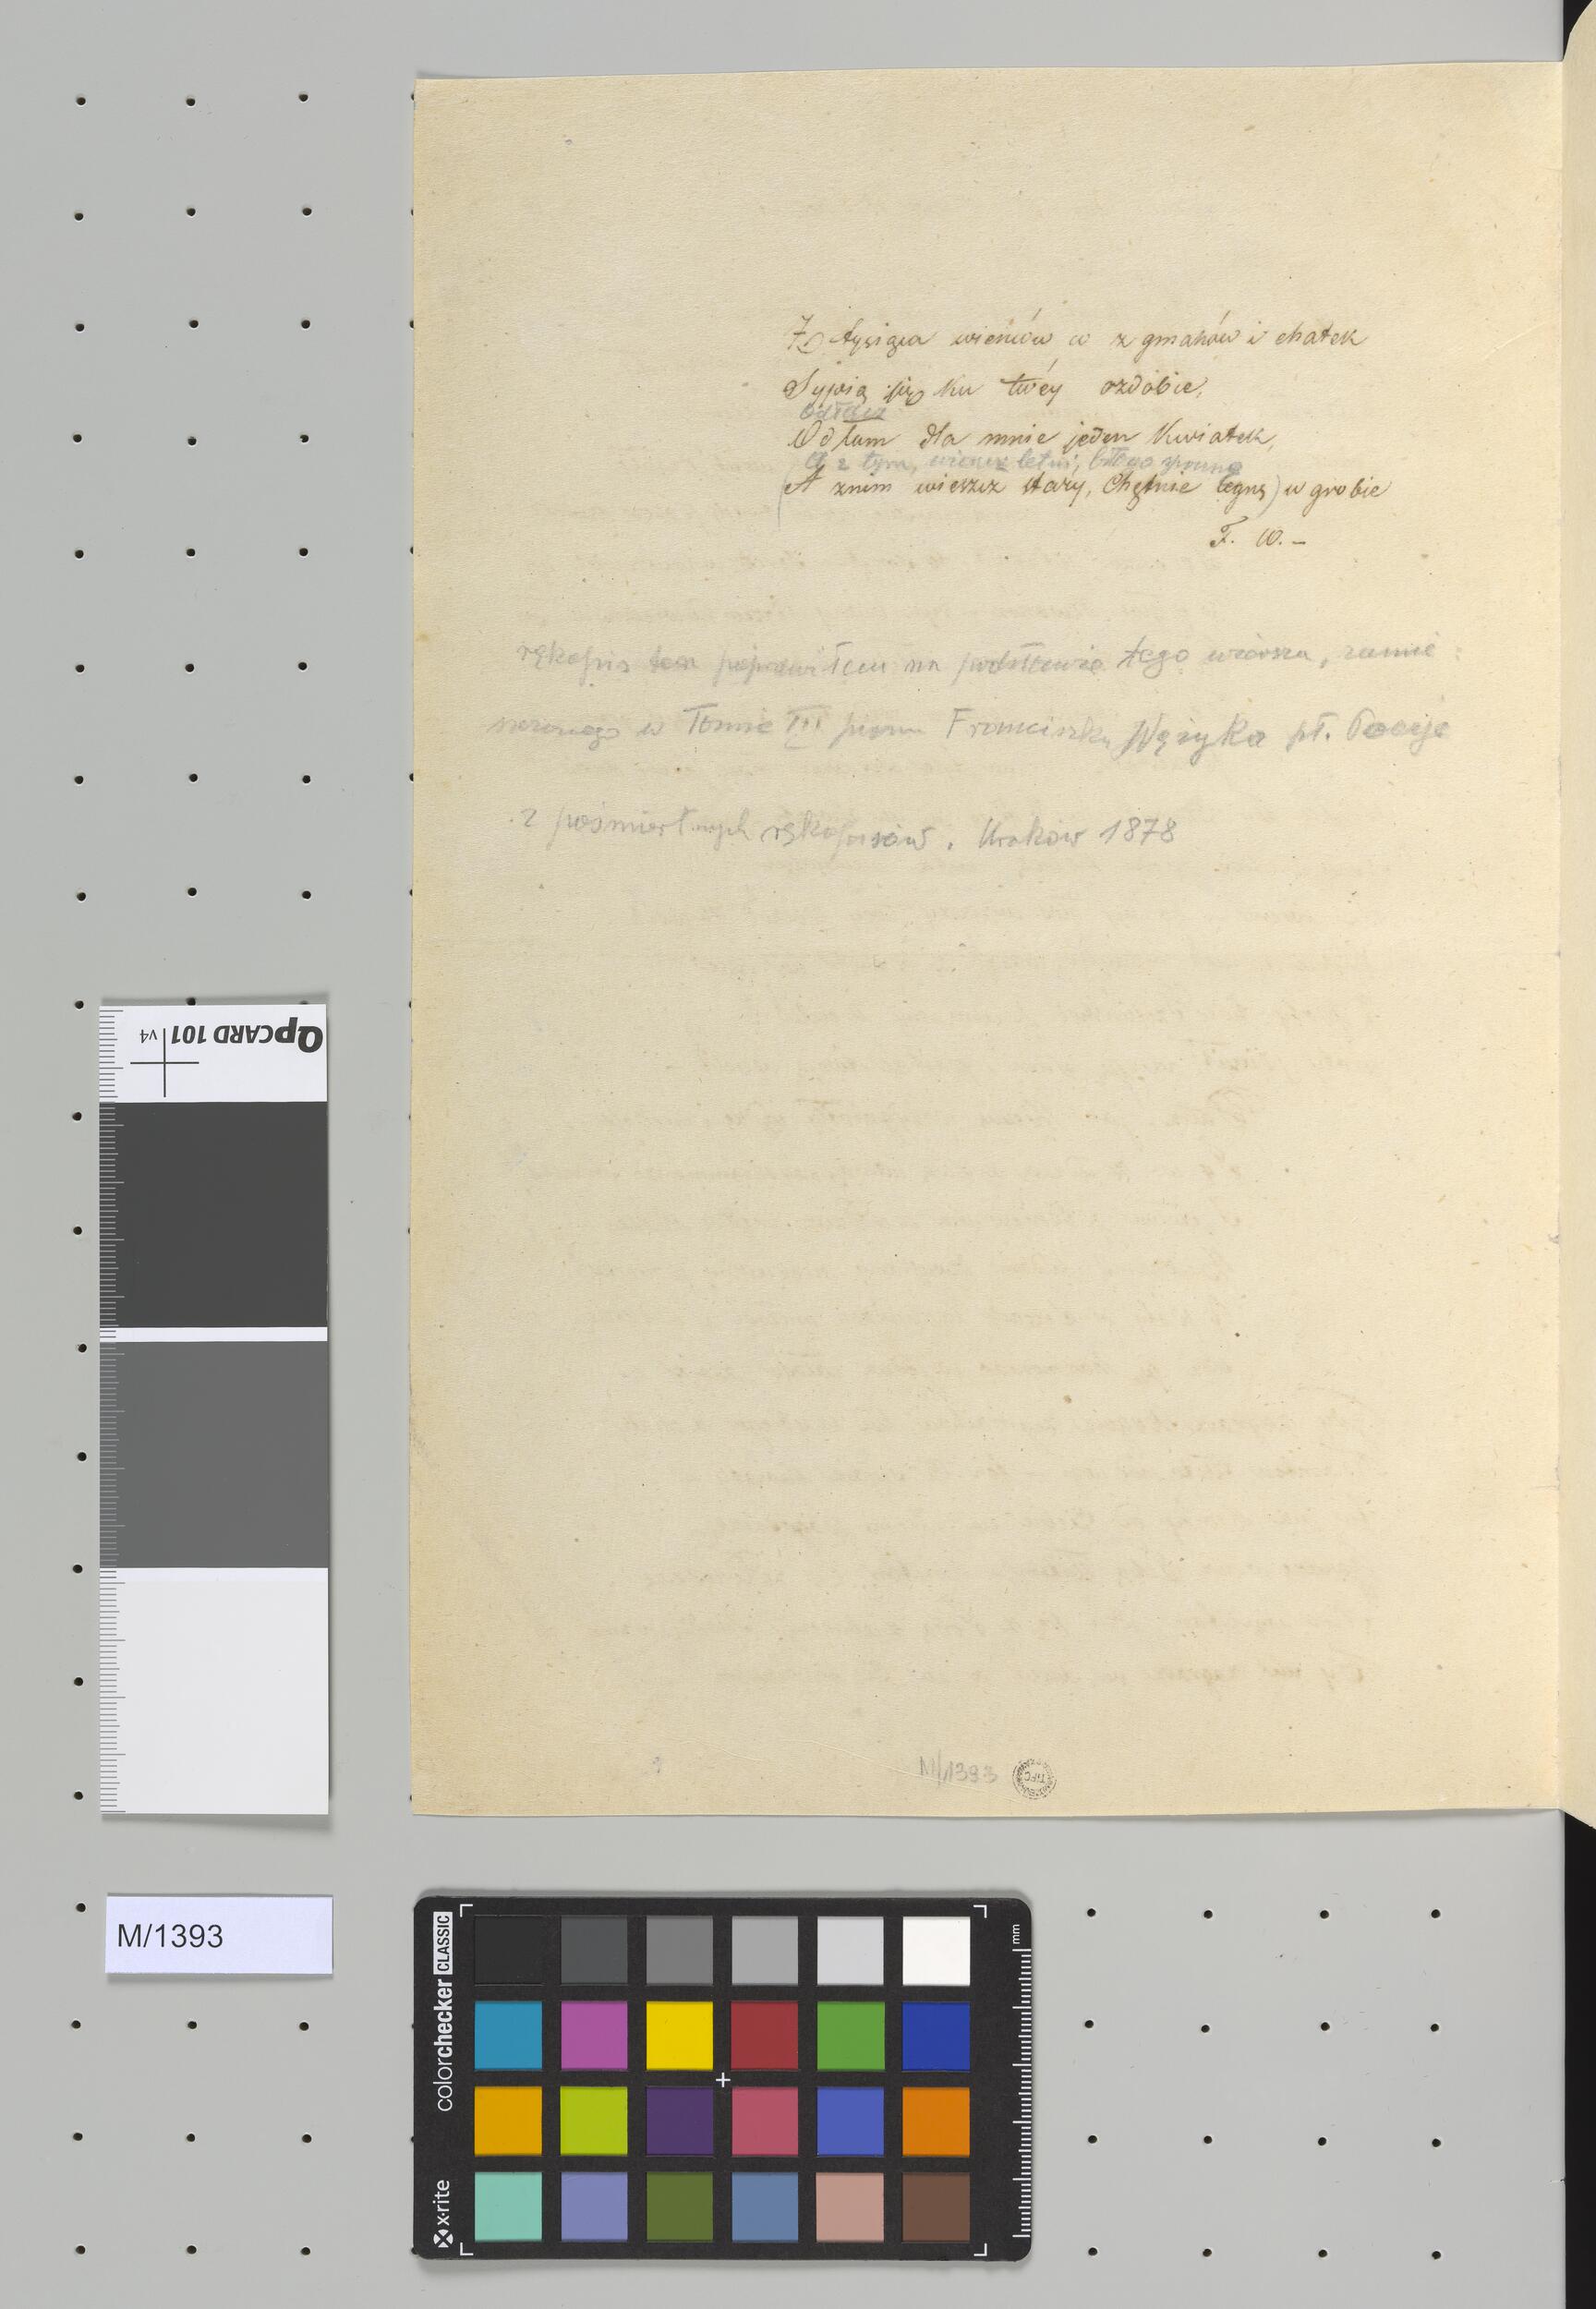 Z tysiąca wieńców co z gmahów i chatek
Sypią się ku twéy ozdobie,
Odłam dla mnie jeden Kwiatek,
A z tym, wieszcz letni,
A znim wieszcz stary, Chętnie legnę) w grobie
F. W. –
rękopis ten poprawiłem na podstawie tego wiersza, zamie
szczonego w Tomie III pism Franciszka Wężyka pt. Poezje
z pośmiertnych rękopisów. Kraków 1878
M/1393
TiFC
QpCARD 101 v4
M/1393
colorchecker CLASSIC
x-rite
mm